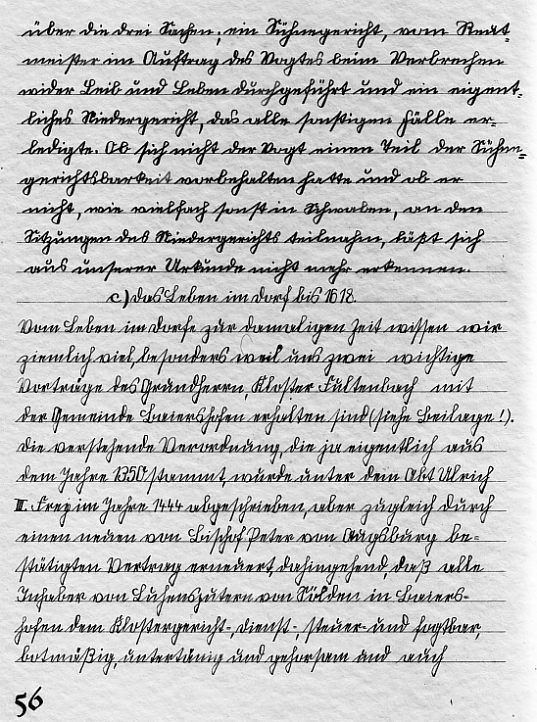 über die drei Sachen; ein Sühnegericht, vom Reut-
meister im Auftrag des Vogtes beim Verbrechen
wider Leib und Leben durchgeführt und ein eigent-
liches Niedergericht, das alle sonstigen Fälle er-
ledigte. Ob sich nicht der Vogt einen Teil der Sühne-
gerichtsbarkeit vorbehalten hatte und ob er
nicht, wie vielfach sonst in Schwaben, an den
Sitzungen des Niedergerichts teilnahm, läßt sich
aus unserer Urkunde nicht mehr erkennen.
c) Das Leben im Dorf bis 1618.
Vom Leben im Dorfe zur damaligen Zeit wissen wir
ziemlich viel, besonders weil uns zwei wichtige
Vorträge des Grundherrn, Kloster Fultenbach mit
der Gemeinde Baiershofen erhalten sind (siehe Beilage!).
Die verstehende Verordnung, die ja eigentlich aus
dem Jahre 1350 stammt, wurde unter dem Abt Ulrich
II. Frey im Jahre 1444 abgeschrieben, aber zugleich durch
einen neuen von Bischof Peter von Augsburg be-
stätigten Vertrag erneuert, dahingehend, daß alle
Inhaber von Lehensgütern von Sölden in Baiers-
hofen dem Klostergericht-, dienst-, steuer- und fogtbar,
botmäßig, untertänig und gehorsam und auch
56